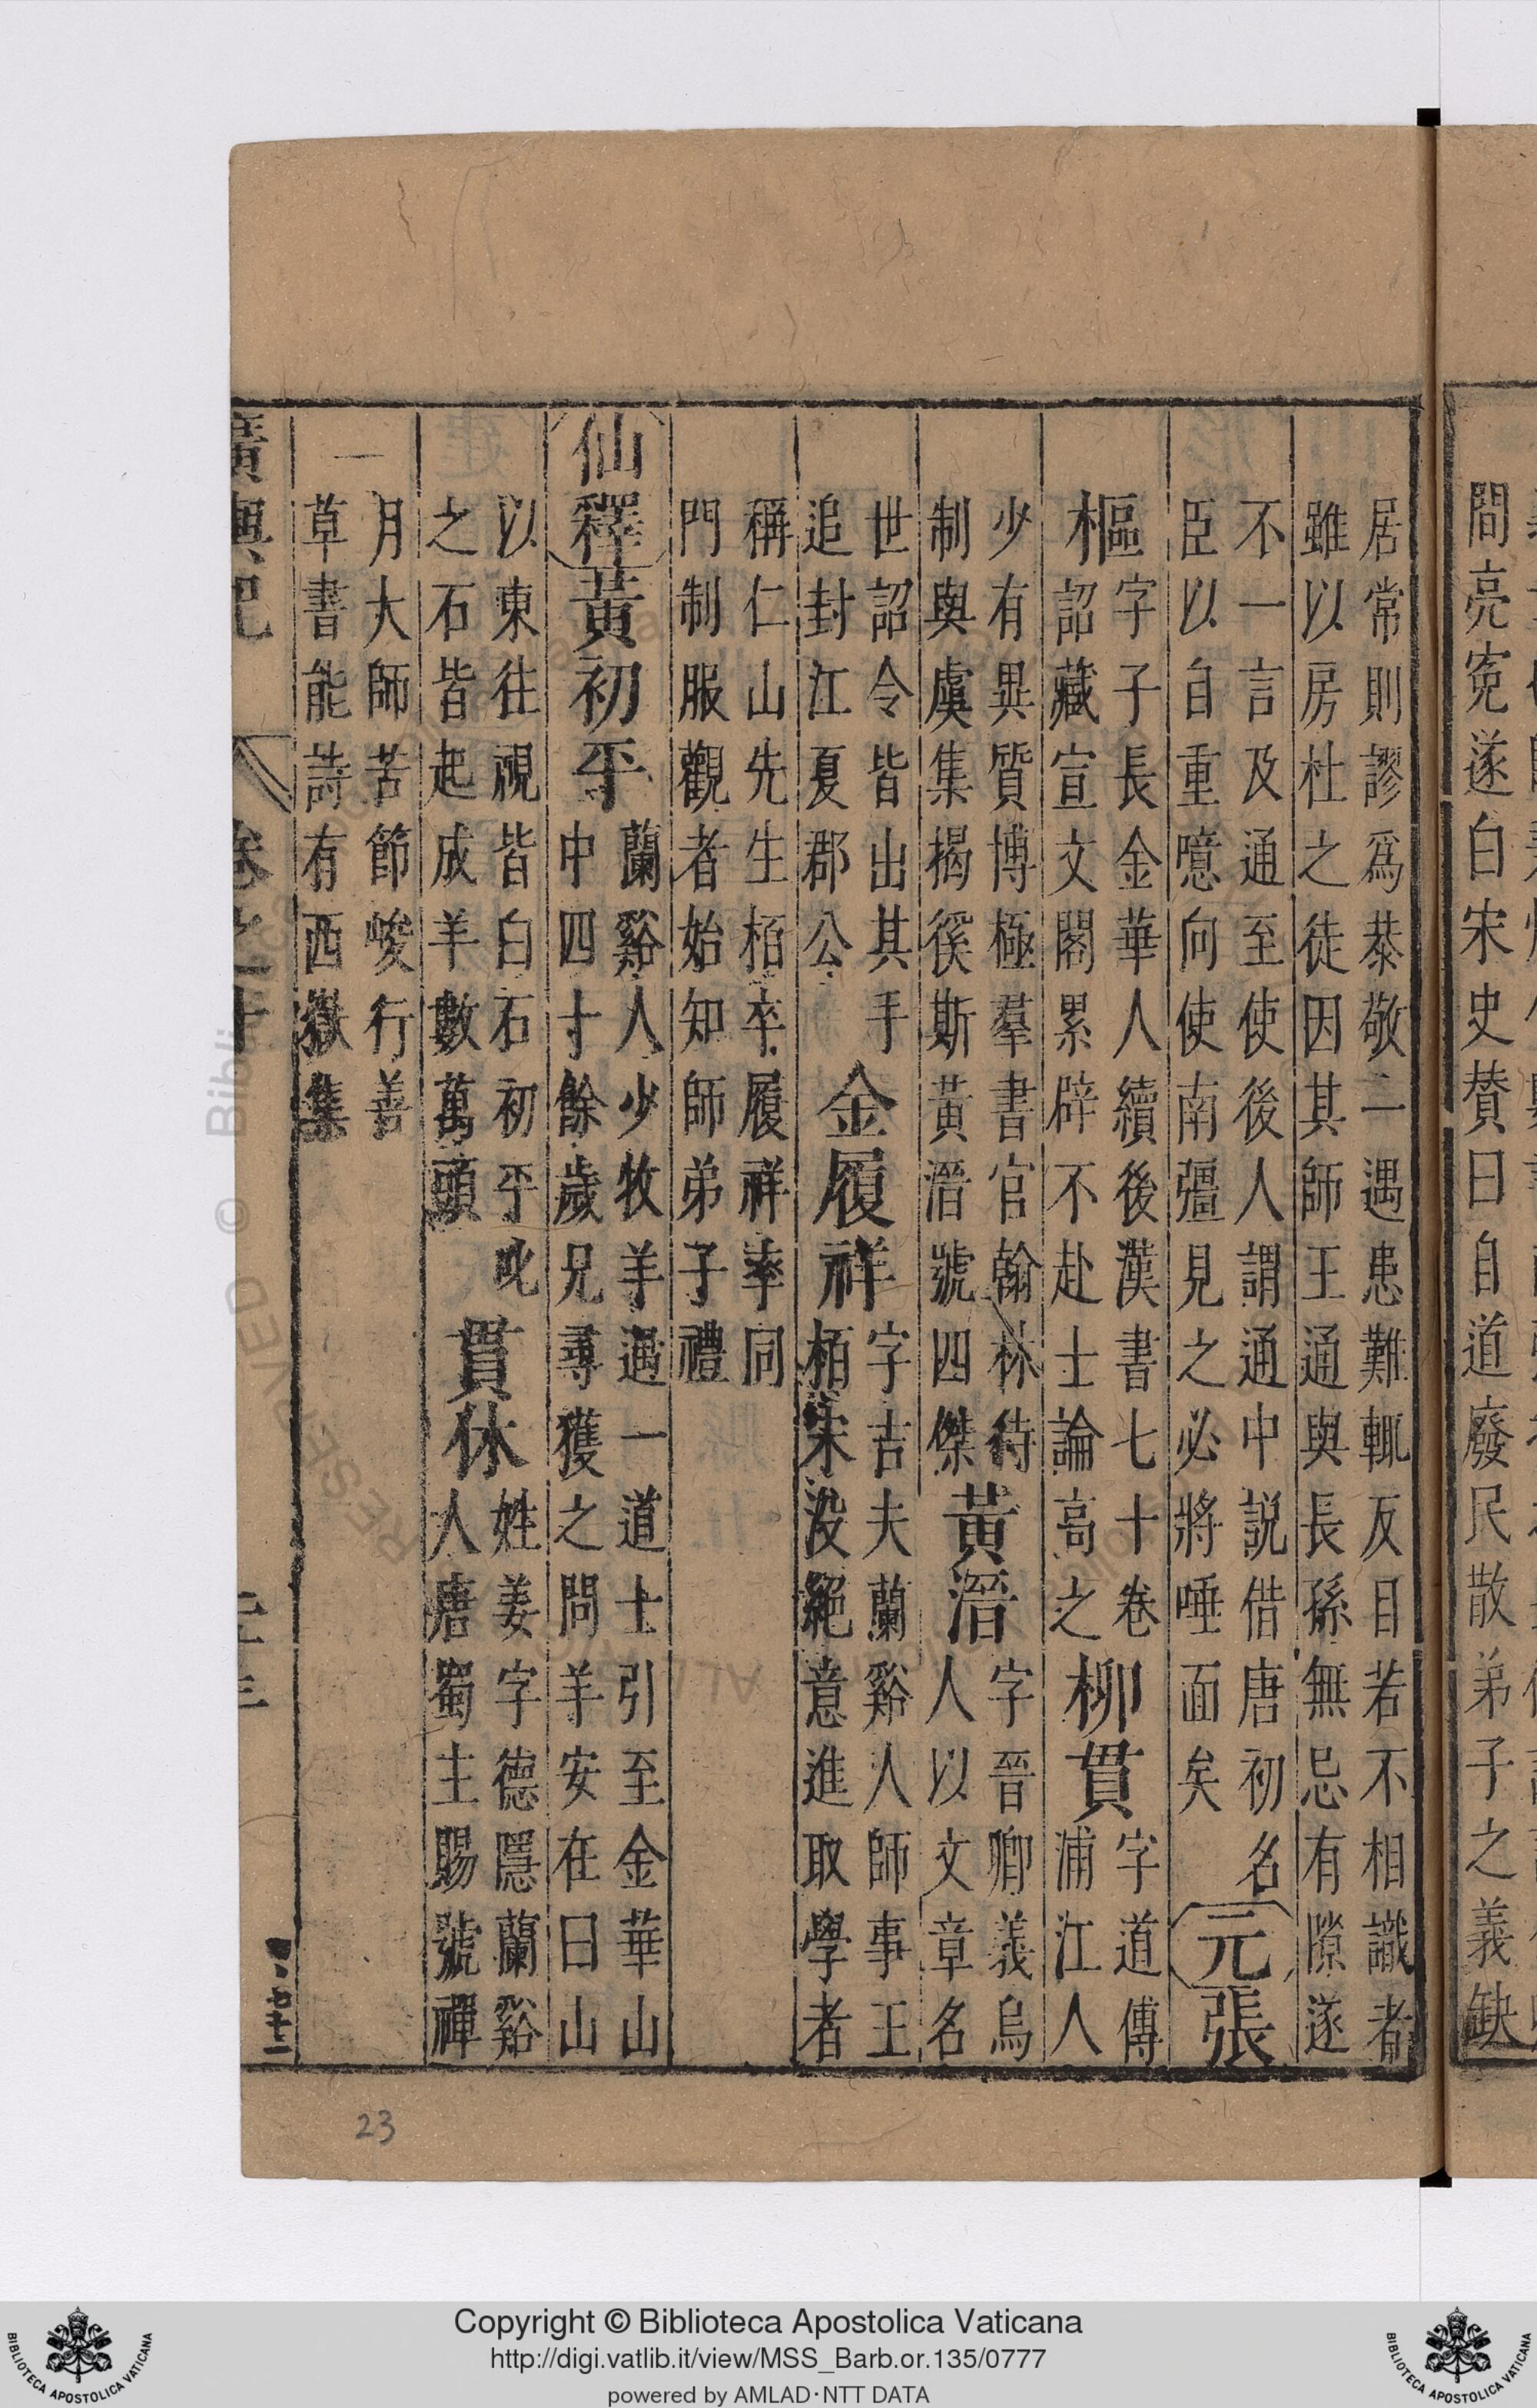 間亮寃遂白宋史賛曰自道廢民散弟子之義缺
居常則謬爲恭敬二遇患難輒反目若不相識者
雖以房杜之徒因其師王通與長孫無忌有隙遂
不一言及通至使後人謂通中説借唐初名
臣以自重噫向使南彊見之必將唾面矣
元張
樞
字子長金華人續後漢書七十卷
詔藏宣文閣累辟不赴士論高之
柳貫
字道傳
浦江人
少有異質博極羣書官翰林待
制與虞集揭徯斯黃溍號四傑
黃溍
字晉卿義烏
人以文章名
世詔令皆出其手
追封江夏郡公
金履祥
字吉夫蘭谿人師事王
栢宋沒絕意進取學者
稱仁山先生栢卒履祥率同
門制服觀者始知師弟子禮
仙釋
黃初平
蘭谿人少牧羊遇一道士引至金華山
中四十餘歲兄尋獲之問羊安在曰山
以東往視皆白石初平叱
之石皆起成羊數萬頭
貫休
姓姜字德隱蘭谿
人唐蜀主賜號禪
月大師苦節峻行善
草書能詩有西嶽集
廣輿記
卷之十
二十三
23
Copyright © Biblioteca Apostolica Vaticana
http://digi.vatlib.it/view/MSS_Barb.or.135/0777
powered by AMLAD·NTT DATA
BIBLIOTECA APOSTOLICA VATICANA
BIBLIOTECA APOSTOLICA VATICANA